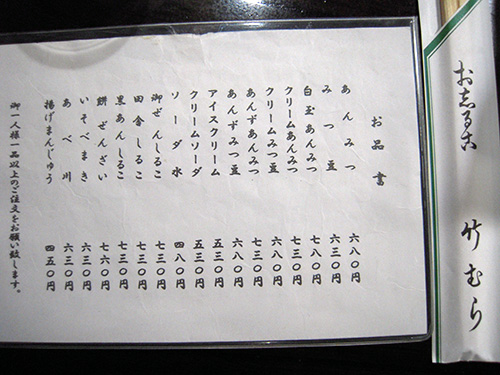 お志る古 竹むら
お品書
あんみつ 六八〇円
みつ豆 六三〇円
白玉あんみつ 七八〇円
クリームあんみつ 七三〇円
クリームみつ豆 六八〇円
あんずあんみつ 七三〇円
あんずみつ豆 六八〇円
アイスクリーム 五三〇円
クリームソーダ 五三〇円
ソーダ水 四八〇円
御ぜんしるこ 七三〇円
田舎しるこ 七三〇円
黒あんしるこ 七三〇円
餅ぜんざい 七六〇円
いそべまき 六三〇円
あべ川 六三〇円
揚げまんじゅう 四五〇円
御一人様一品以上のご注文をお願い致します。